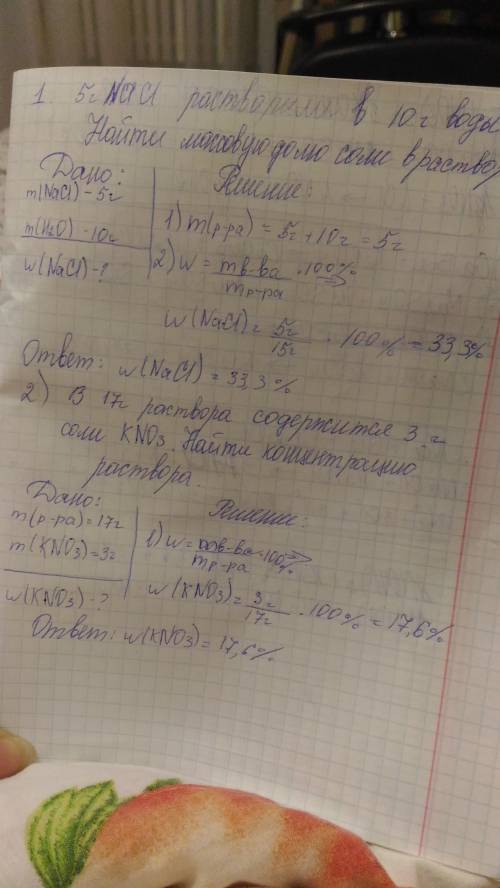 1. 5г NaCl растворили в 10г воды
Найти массовую долю соли в раствор
Дано:
Решение:
m(NaCl) - 5г
m(H₂O) - 10г
w(NaCl) - ?
1) m(р-ра) = 5г + 10г = 5г
2) w = mв-ва / mр-ра · 100% ⇒
w(NaCl) = 5г / 15г · 100% = 33,3%
Ответ: w(NaCl) = 33,3%
2) В 17г раствора содержится 3 г
соли KNO₃. Найти концентрацию
раствора.
Дано:
Решение:
m(р-ра) = 17г
m(KNO₃) = 3г
w(KNO₃) - ?
1) w = в-ва / mр-ра · 100% ⇒
w(KNO₃) = 3г / 17г · 100% = 17,6%
Ответ: w(KNO₃) = 17,6%